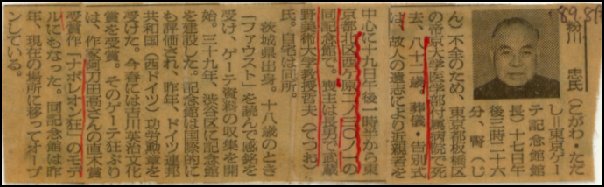 '89.8.
粉川 忠氏(とがわ・ただ
し=東京ゲー
テ記念館館
長)十七日午後
二時二十六
分、腎(じ
ん)不全のため、東京都板橋区
の帝京大学医学部付属病院で死
去、八十二歳。葬儀・告別式
は、故人の遺志により近親者を
中心に十九日午後一時半から東
京都北区西ヶ原二ノ三〇ノ一の
同記念館で。喪主は長男で武蔵
野美術大学教授哲夫(てつお)
氏。自宅は同所。
茨城県出身。十八歳のとき
「ファウスト」を読んで感銘を
受け、ゲーテ資料の収集を開
始。三十九年、渋谷区に記念館
を建設した。記念館は国際的に
も評価され、昨年、ドイツ連邦
共和国(西ドイツ)功労勲章を
受けた。今春には吉川英治文化
賞を受賞。そのゲーテ狂ぶり
は、作家阿刀田高さんの直木賞
受賞作「ナポレオン狂」のモデ
ルにもなった。同記念館は昨
年、現在の場所に移ってオープ
ンしている。